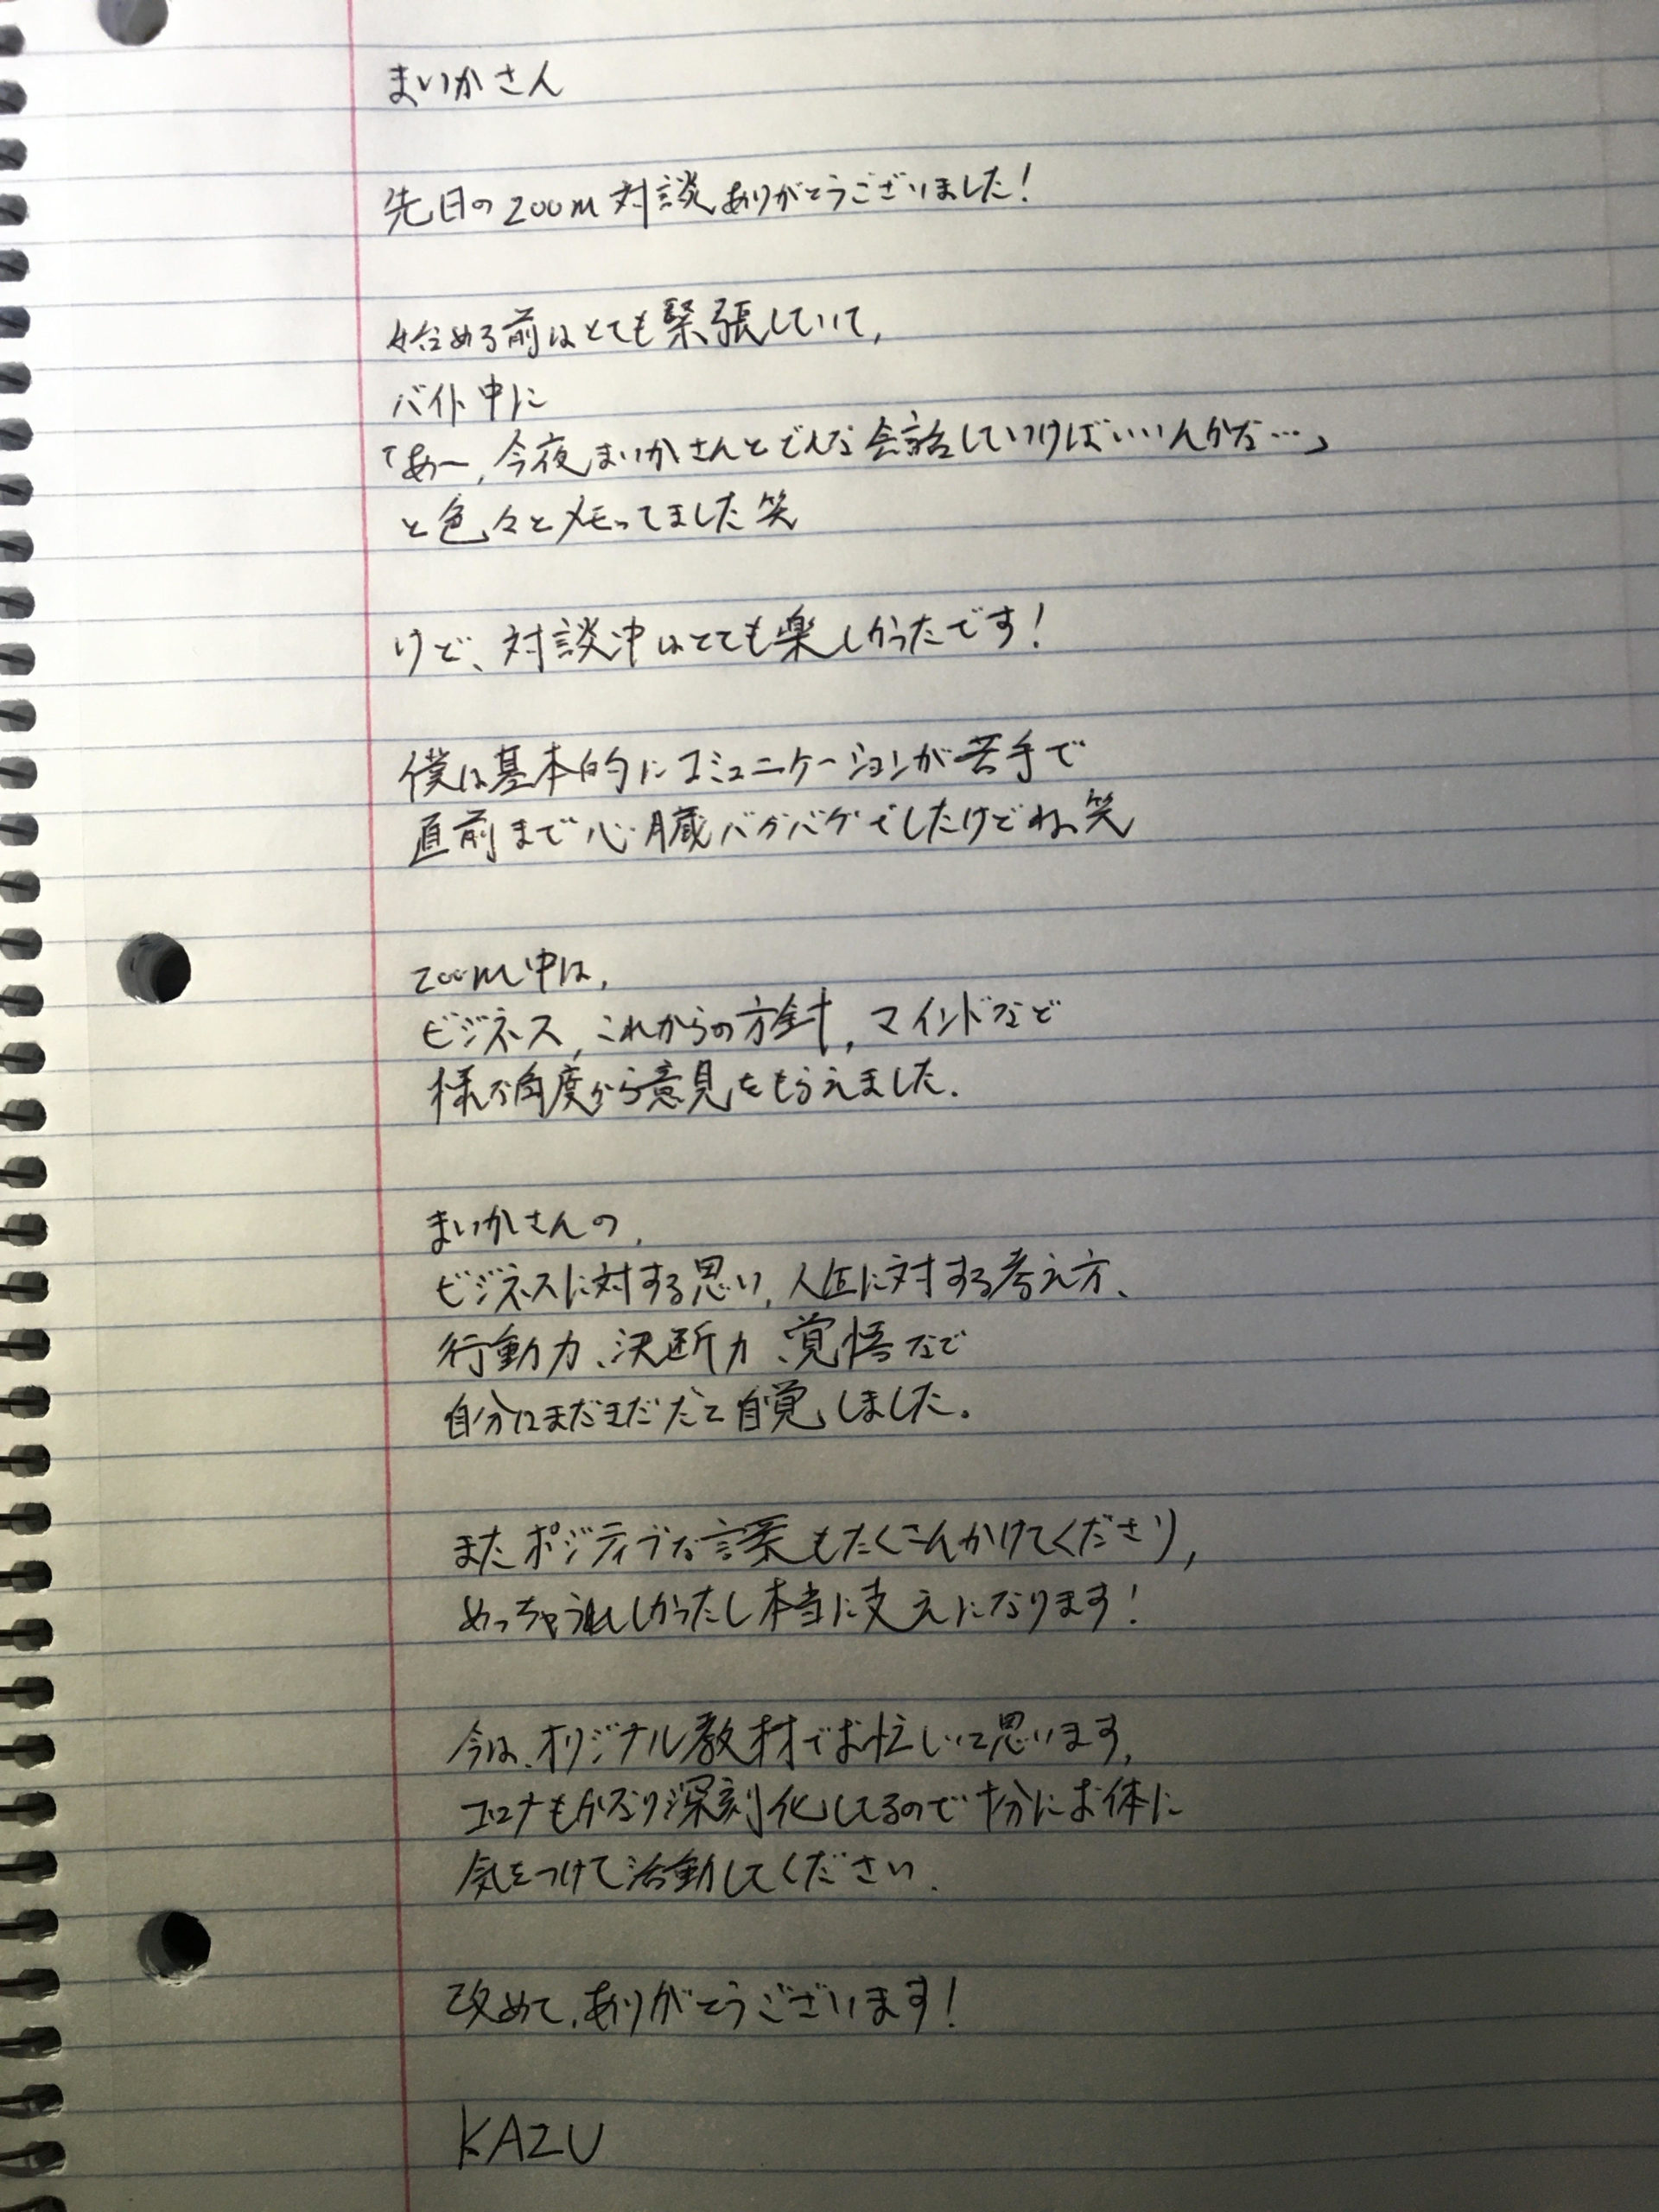 まいかさん
先日のzoom対談ありがとうございました!
始める前はとても緊張していて,
バイト中に
「あー,今夜まいかさんとどんな会話していけばいいんかな…」
と色々とメモってました笑
けど、対談中はとても楽しかったです!
僕は基本的にコミュニケーションが苦手で
直前まで心臓バクバクでしたけどね笑
zoom中は,
ビジネス,これからの方針,マインドなど
様な角度から意見をもらえました.
まいかさんの,
ビジネスに対する思い,人生に対する考え方、
行動力、決断力、覚悟など
自分はまだまだだと自覚しました。
またポジティブな言葉もたくさんかけてくださり,
めっちゃうれしかったし本当に支えになります!
今は、オリジナル教材でお忙しいと思います,
コロナもかなり深刻化してるので十分にお体に
気をつけて活動してください.
改めて,ありがとうございます!
KAZU